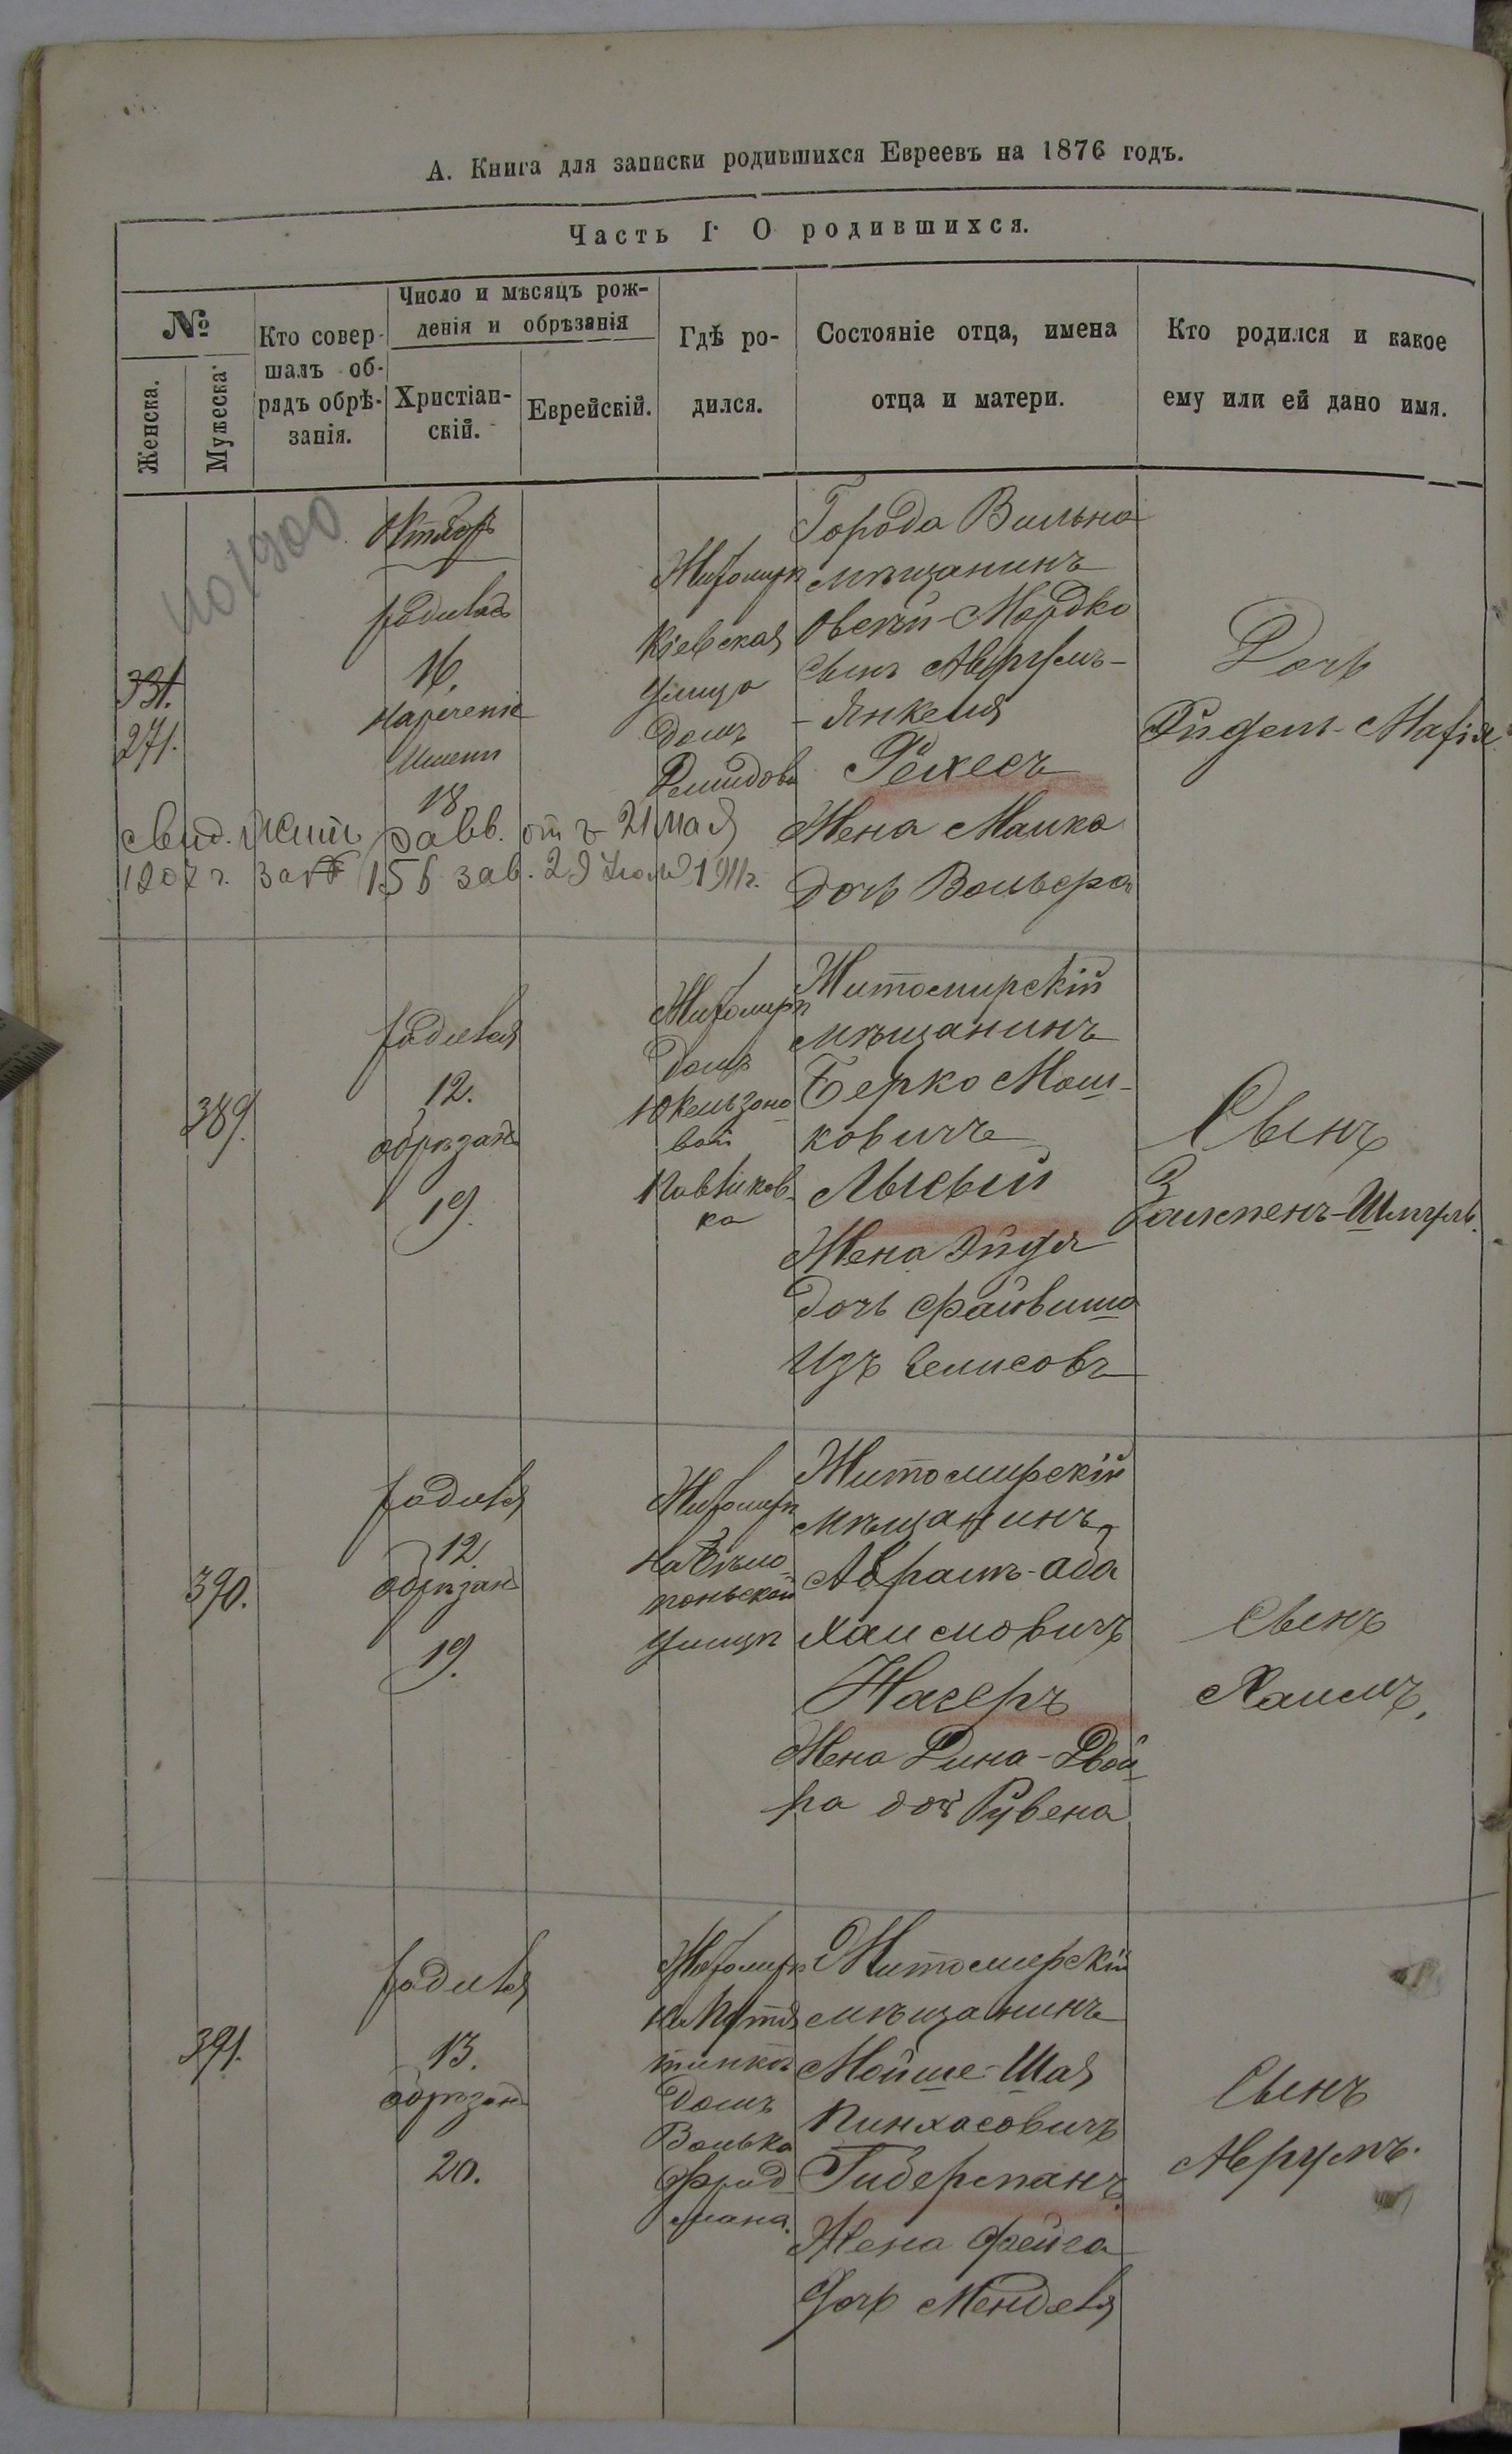 А. Книга для записки родившихся Евреевъ на 1876 годъ.
Часть I. О родившихся.
№
Женска.
Мужеска.
Кто совер-
шалъ об-
рядъ обрѣ-
занія.
Число и мѣсяцъ рож-
денія и обрѣзанія
Христіан-
скій.
Еврейскій.
Гдѣ ро-
дился.
Состояніе отца, имена
отца и матери.
Кто родился и какое
ему или ей дано имя.
331.
271.
Октябрь
родилась
16.
нареченіе
имени
18
Житомирѣ
Кіевская
улица
домъ
Города Вильна
мѣщанинъ
Овсей-Мордко
сынъ Аврумъ-
-Янкеля
Рехесъ
Жена Малка
дочь Вольфера
Дочь
свид. Жит. равв. отъ 21 мая
1907 г. за № 156 зав. 29 Іюля 1911 г.
389.
родился
12.
обрѣзанъ
19.
Житомирѣ
домъ
Юкельзоно
вой
Жи­томирскій
мѣщанинъ
Берко Мош-
ковичъ
Лысый
Жена Эйдя
дочь Файвиша
Изъ
Сынъ
Залменъ-Шмуль.
390.
родился
12.
обрѣзанъ
19.
Житомирѣ
на Бѣло-
польской
улицѣ
Житомирскій
мѣщанинъ
Аврамъ-Аба
Хаимовичъ
Нагеръ
Жена Дина-Двой-
ра дочь Рувена
Сынъ
Хаимъ.
391.
родился
13.
обрѣзанъ
20.
Житомирѣ
на Путя
тинкѣ
домъ
Волька
Фрид
мана.
Житомирскій
мѣщанинъ
Мойше-Шая
Пинхасовичъ
Гиберманъ
Жена Фейга
дочь Менделя
Сынъ
Аврумъ.